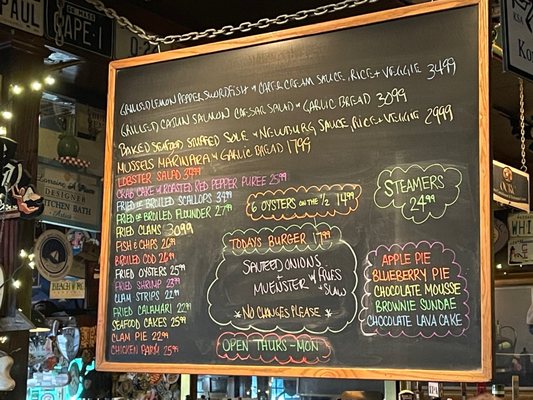 PAUL
CAPE 1
GRILLED LEMON PEPPER SWORDFISH W CAPER CREAM SAUCE, RICE + VEGGIE 34.99
GRILLED CAJUN SALMON CAESAR SALAD W GARLIC BREAD 30.99
BAKED SEAFOOD STUFFED SOLE W NEWBURG SAUCE, RICE + VEGGIE 29.99
MUSSELS MARINARA W GARLIC BREAD 17.99
LOBSTER SALAD 34.99
CRAB CAKE W ROASTED RED PEPPER PUREE 25.99
FRIED OR BROILED SCALLOPS 34.99
FRIED OR BROILED FLOUNDER 27.99
FRIED CLAMS 30.99
FISH & CHIPS 26.99
BROILED COD 26.99
FRIED OYSTERS 25.99
FRIED SHRIMP 23.99
CLAM STRIPS 22.99
FRIED CALAMARI 22.99
SEAFOOD CAKES 25.99
CLAM PIE 22.99
CHICKEN PARM 25.99
6 OYSTERS ON THE 1/2 14.99
STEAMERS
24.99
TODAYS BURGER 17.99
SAUTEED ONIONS
+
MUENSTER
W/ FRIES
+ SLAW
* NO CHANGES PLEASE *
OPEN THURS - MON
APPLE PIE
BLUEBERRY PIE
CHOCOLATE MOUSSE
BROWNIE SUNDAE
CHOCOLATE LAVA CAKE
DESIGNER
KITCHEN BATH